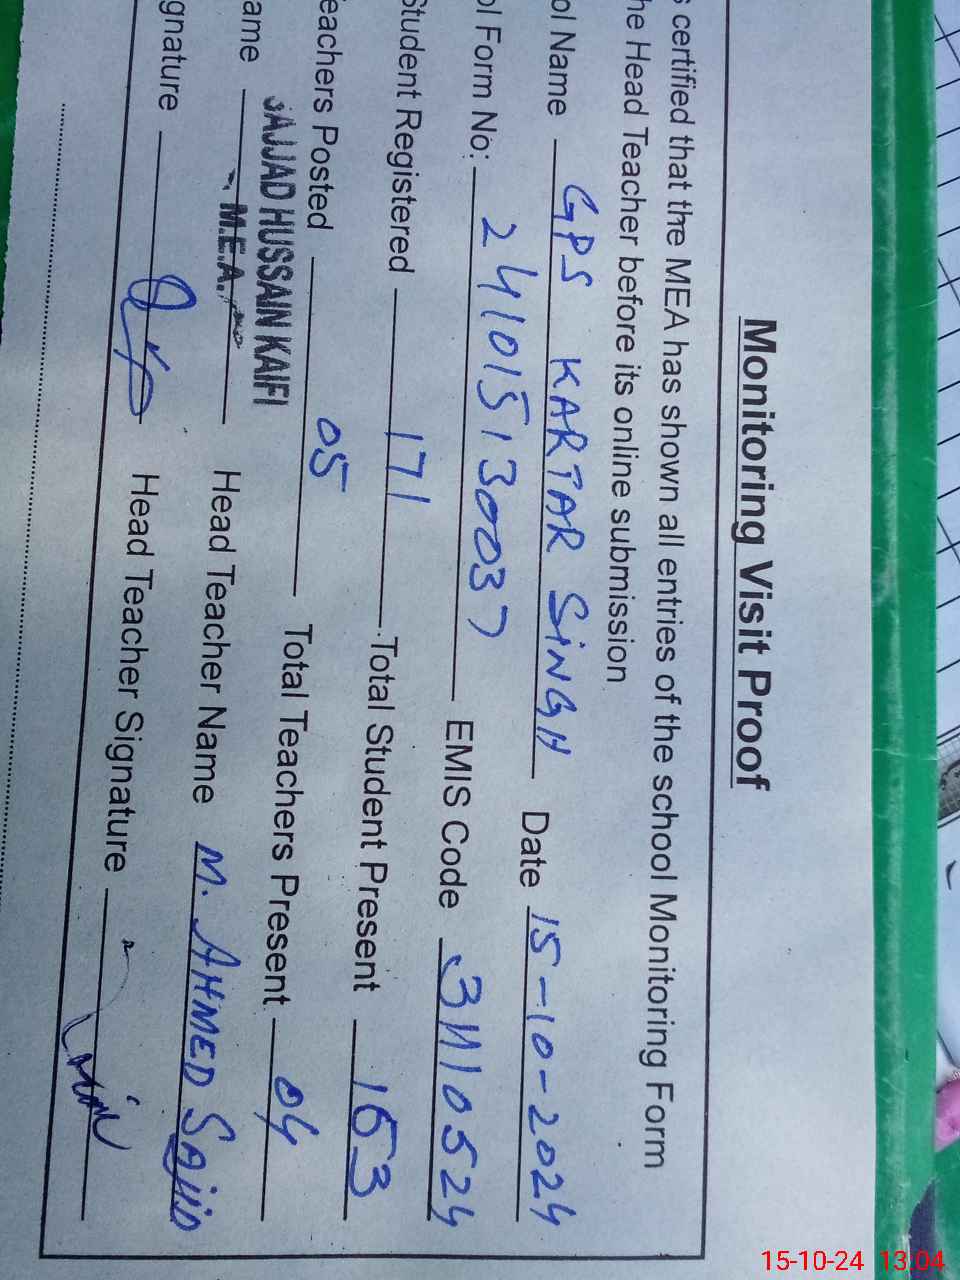 Monitoring Visit Proof
s certified that the MEA has shown all entries of the school Monitoring Form
he Head Teacher before its online submission
ol Name GPS KARTAR SINGH Date 15-10-2024
ol Form No: 241015130037 EMIS Code 31110524
Student Registered 171 Total Student Present 163
eachers Posted 05 Total Teachers Present 04
SAJJAD HUSSAIN KAIFI
ame M.E.A. Head Teacher Name M. AHMED SAJID
gnature Head Teacher Signature
15-10-24 13:04